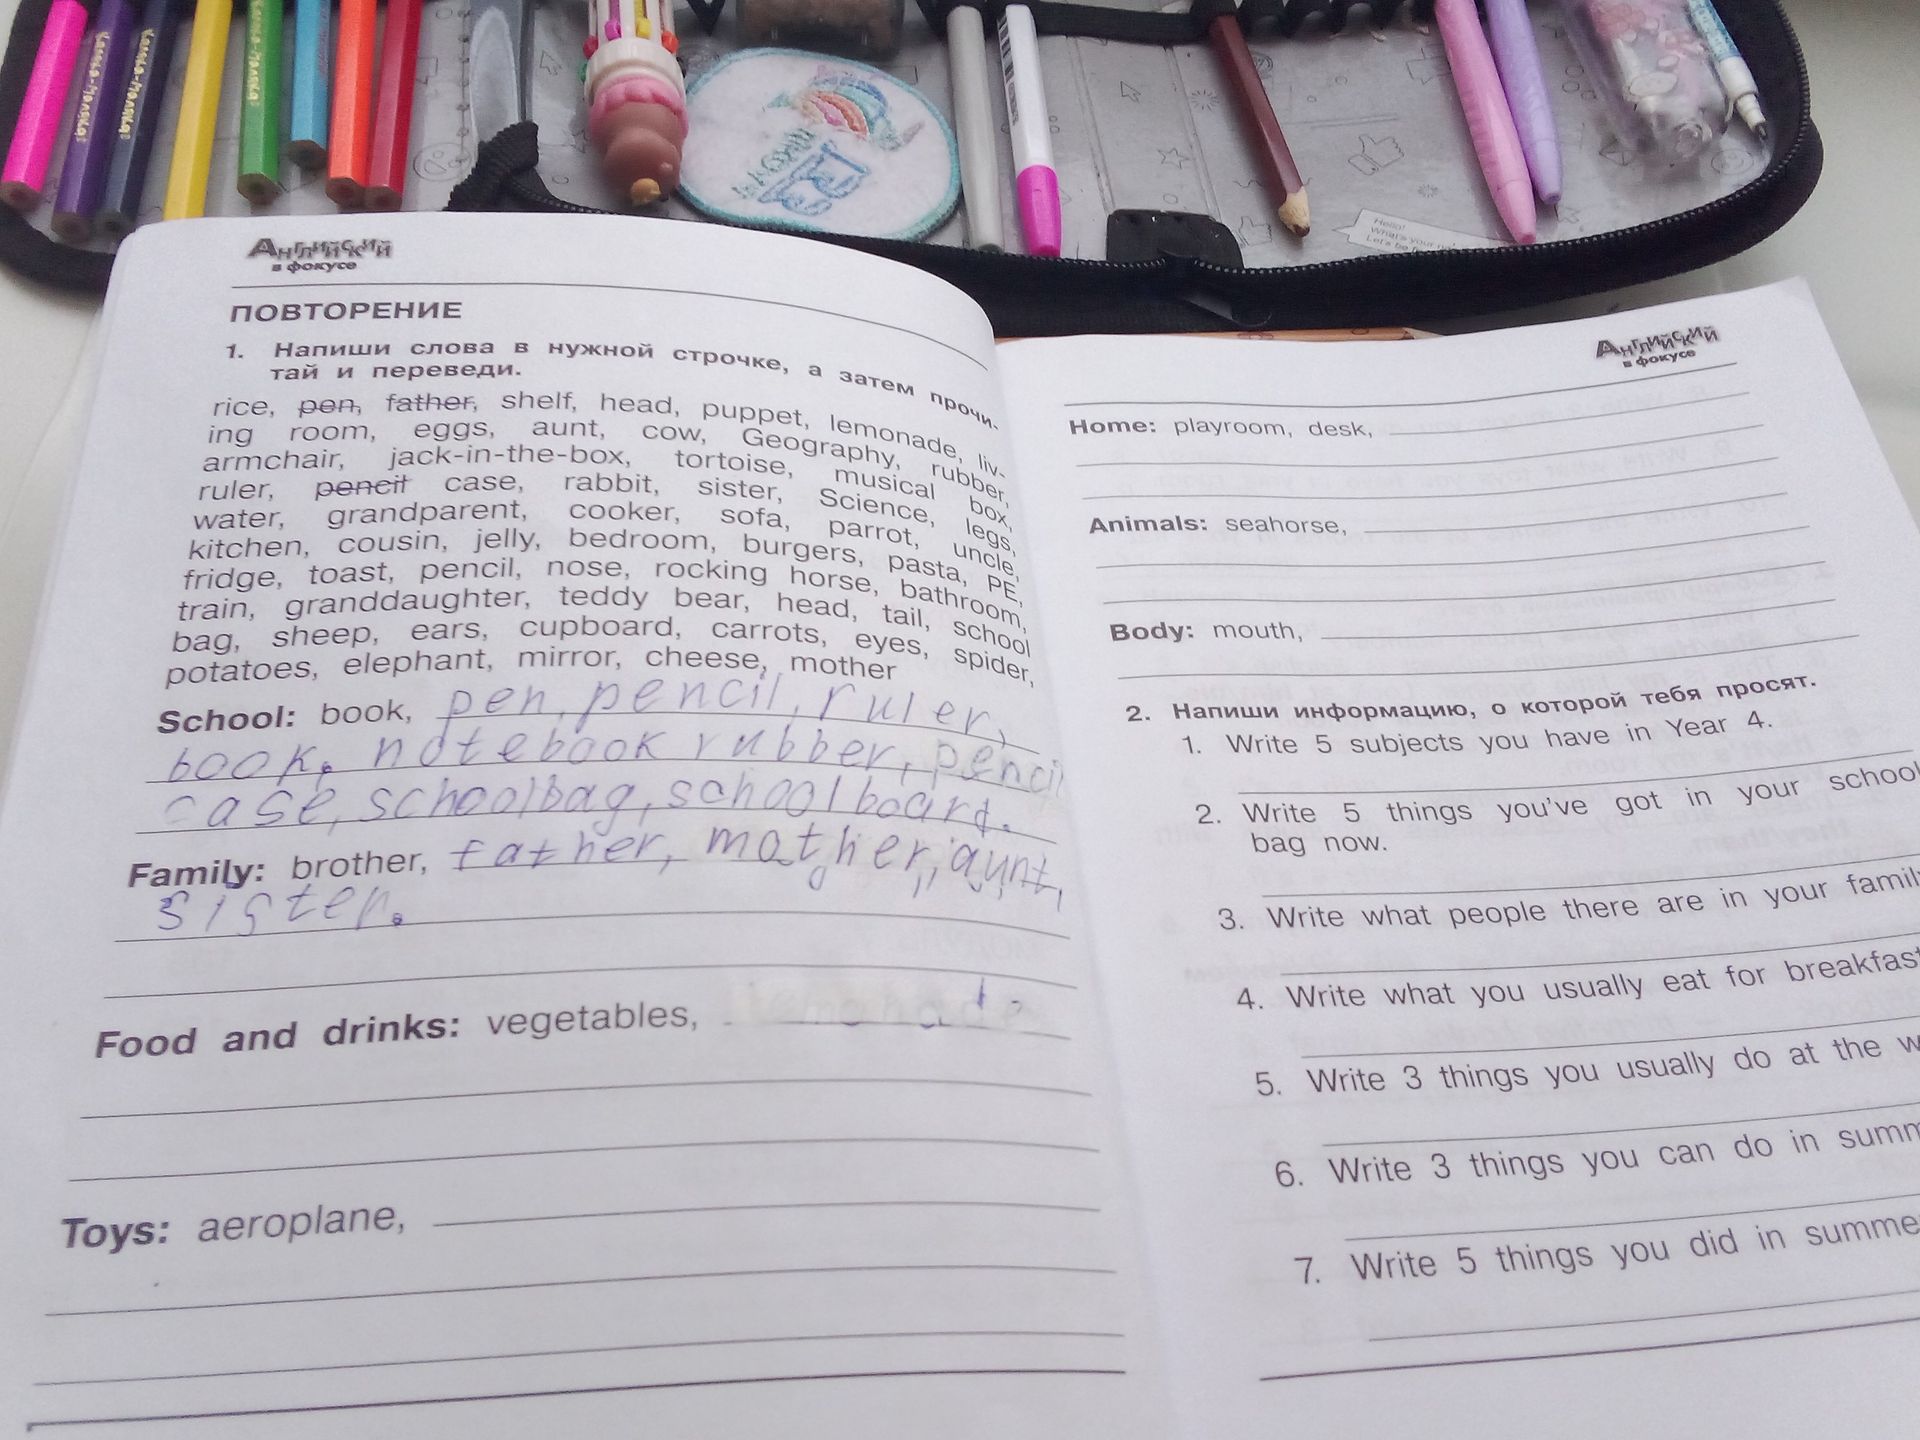 Английский
в фокусе
ПОВТОРЕНИЕ
1. Напиши слова в нужной строчке, а затем прочи-
тай и переведи.
rice, pen, father, shelf, head, puppet, lemonade, liv-
ing room, eggs, aunt, cow, Geography, rubber,
armchair, jack-in-the-box, tortoise, musical box,
ruler, pencil case, rabbit, sister, Science, legs,
water, grandparent, cooker, sofa, parrot, uncle,
kitchen, cousin, jelly, bedroom, burgers, pasta, PE,
fridge, toast, pencil, nose, rocking horse, bathroom,
train, granddaughter, teddy bear, head, tail, school
bag, sheep, ears, cupboard, carrots, eyes, spider,
potatoes, elephant, mirror, cheese, mother
School: book, pen, pencil, ruler,
book, notebook rubber, pencil
case, schoolbag, schoolboard.
Family: brother, father, mother, aunt,
sister.
Food and drinks: vegetables, lemonade
Toys: aeroplane,
Английский
в фокусе
Home: playroom, desk,
Animals: seahorse,
Body: mouth,
2. Напиши информацию, о которой тебя просят.
1. Write 5 subjects you have in Year 4.
2. Write 5 things you've got in your school
bag now.
3. Write what people there are in your family
4. Write what you usually eat for breakfast
5. Write 3 things you usually do at the w
6. Write 3 things you can do in summ
7. Write 5 things you did in summe